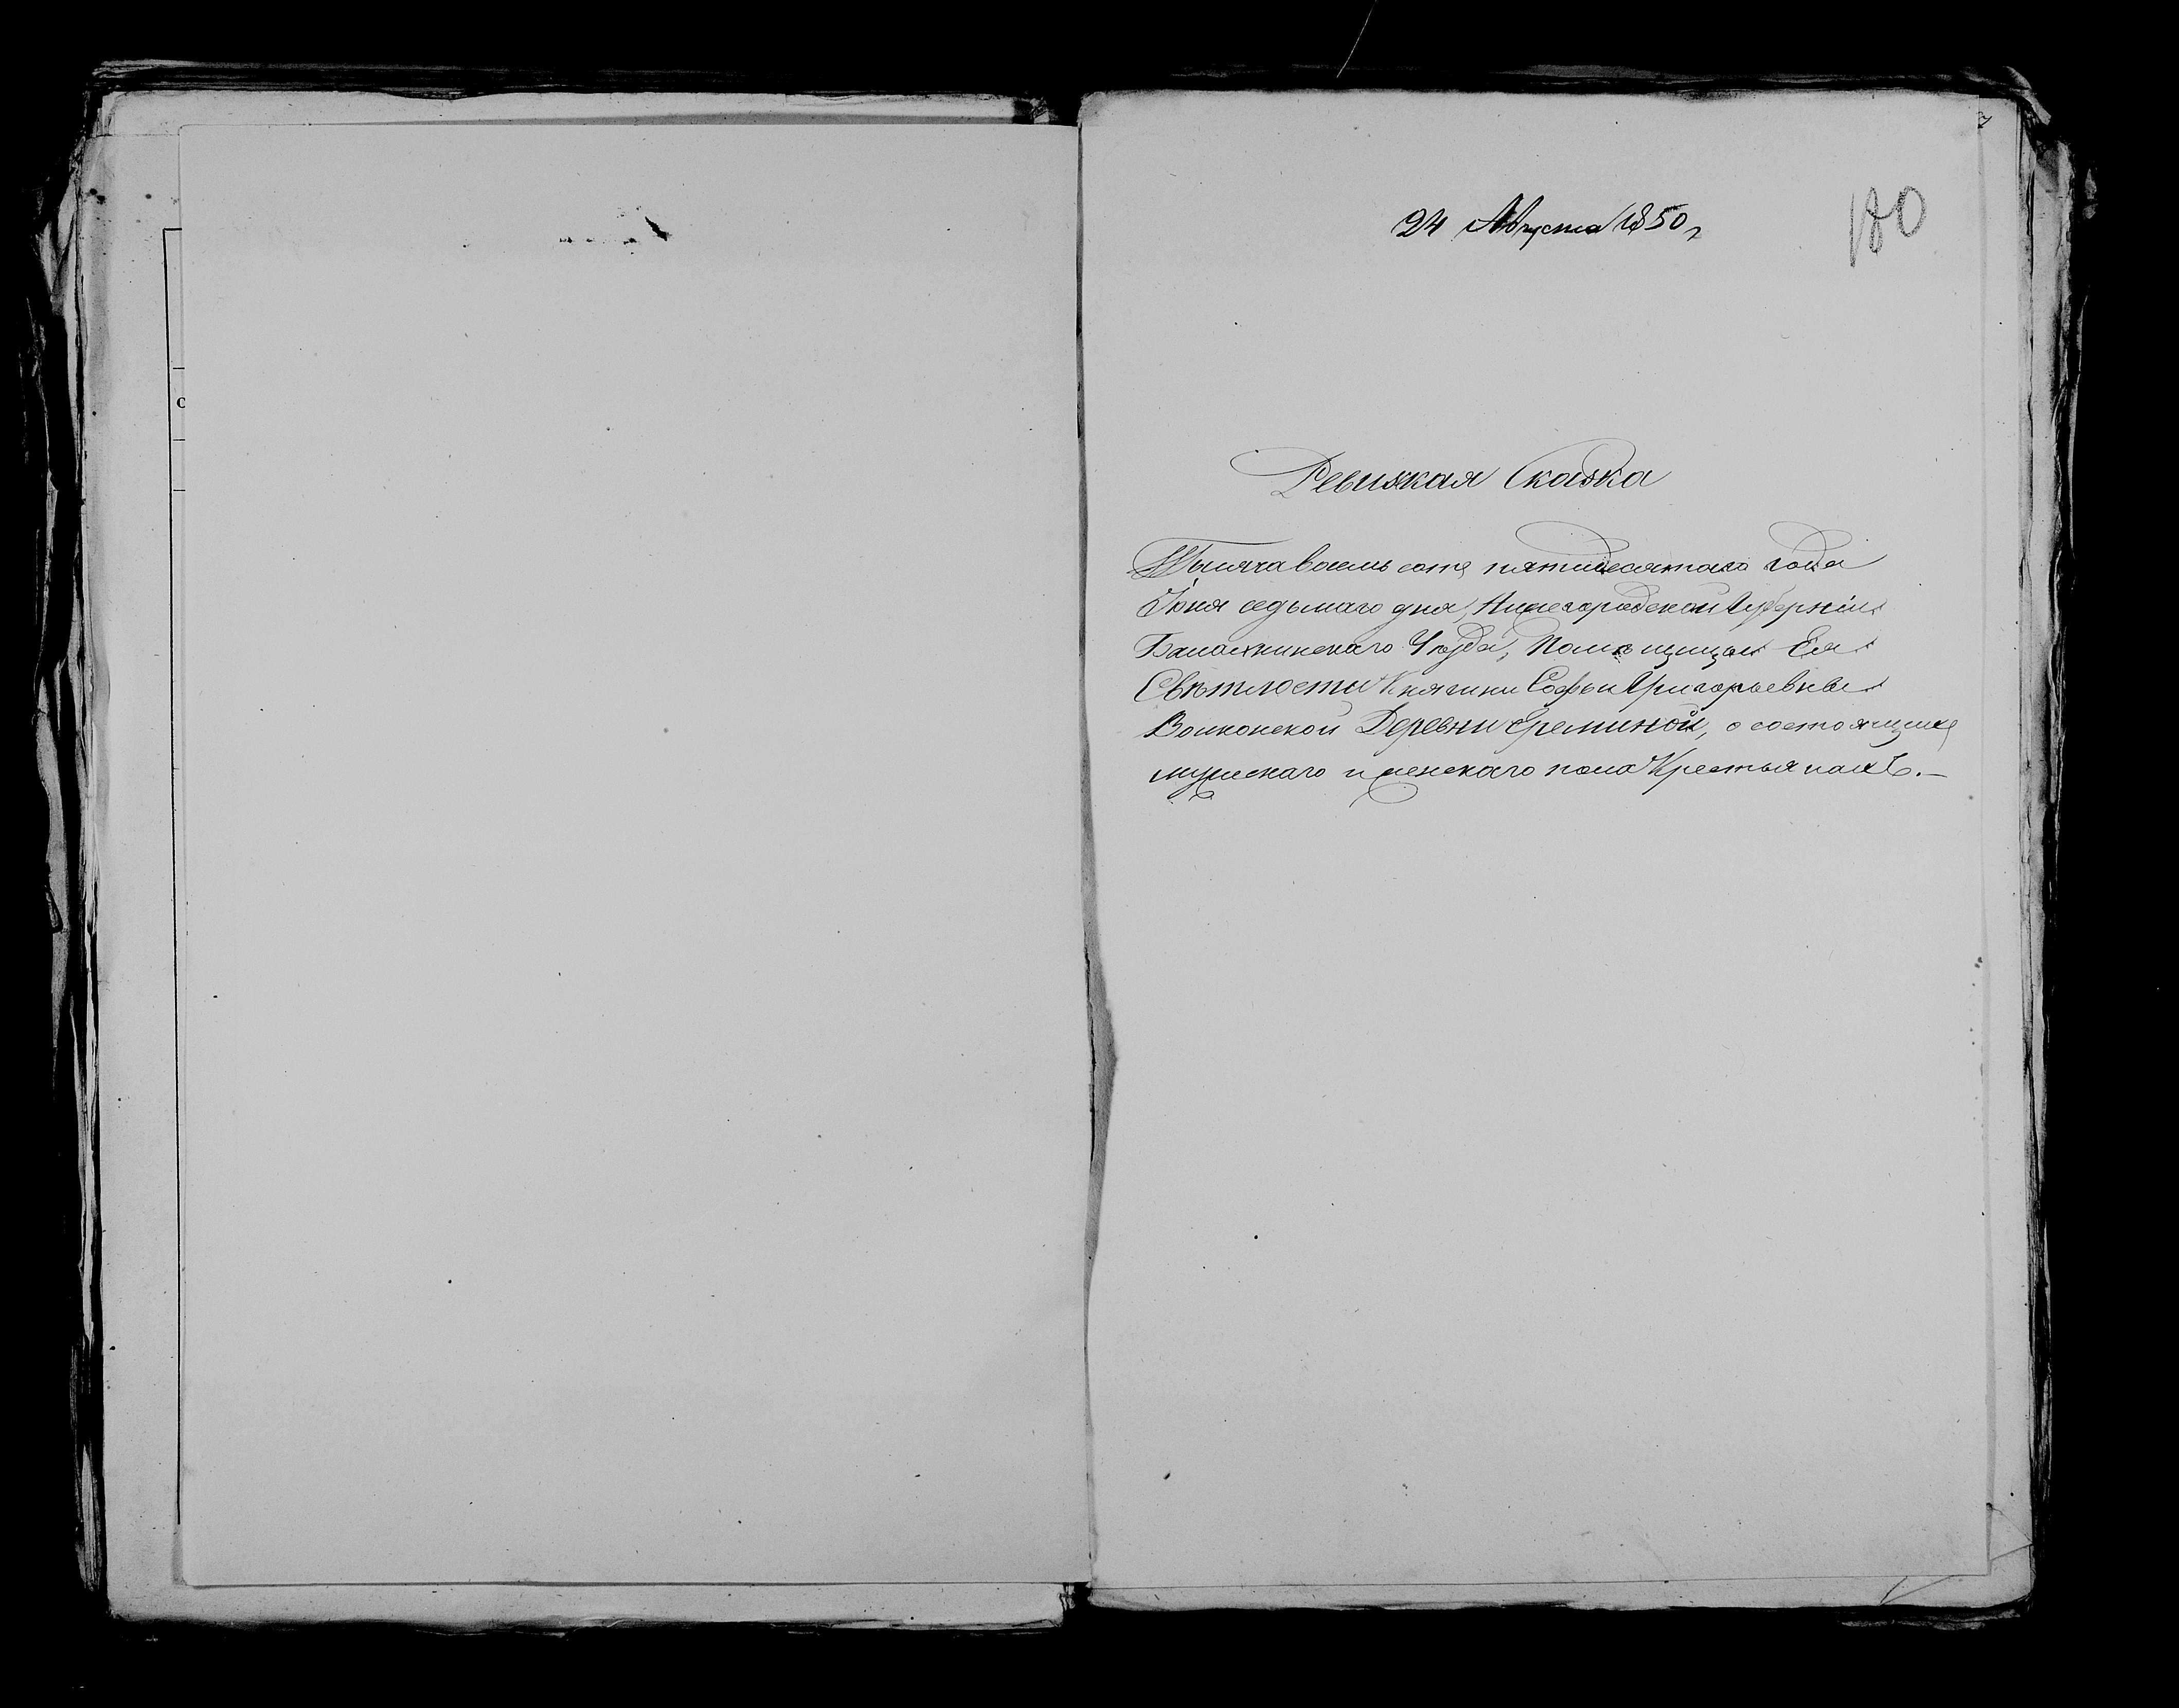 24 Августа 1850 г
180
Ревизкая Сказка
Тысяча восемь сотъ пятидесятаго года
Іюня седьмаго дня, Нижегородской Губерніи
Балахнинскаго Уѣзда, Помѣщицы Ея
Свѣтлости Княгини Софьи Григорьевны
Волконской Деревни Ереминой, о состоящихъ
мужескаго и женскаго пола Крестьянахъ.—
С